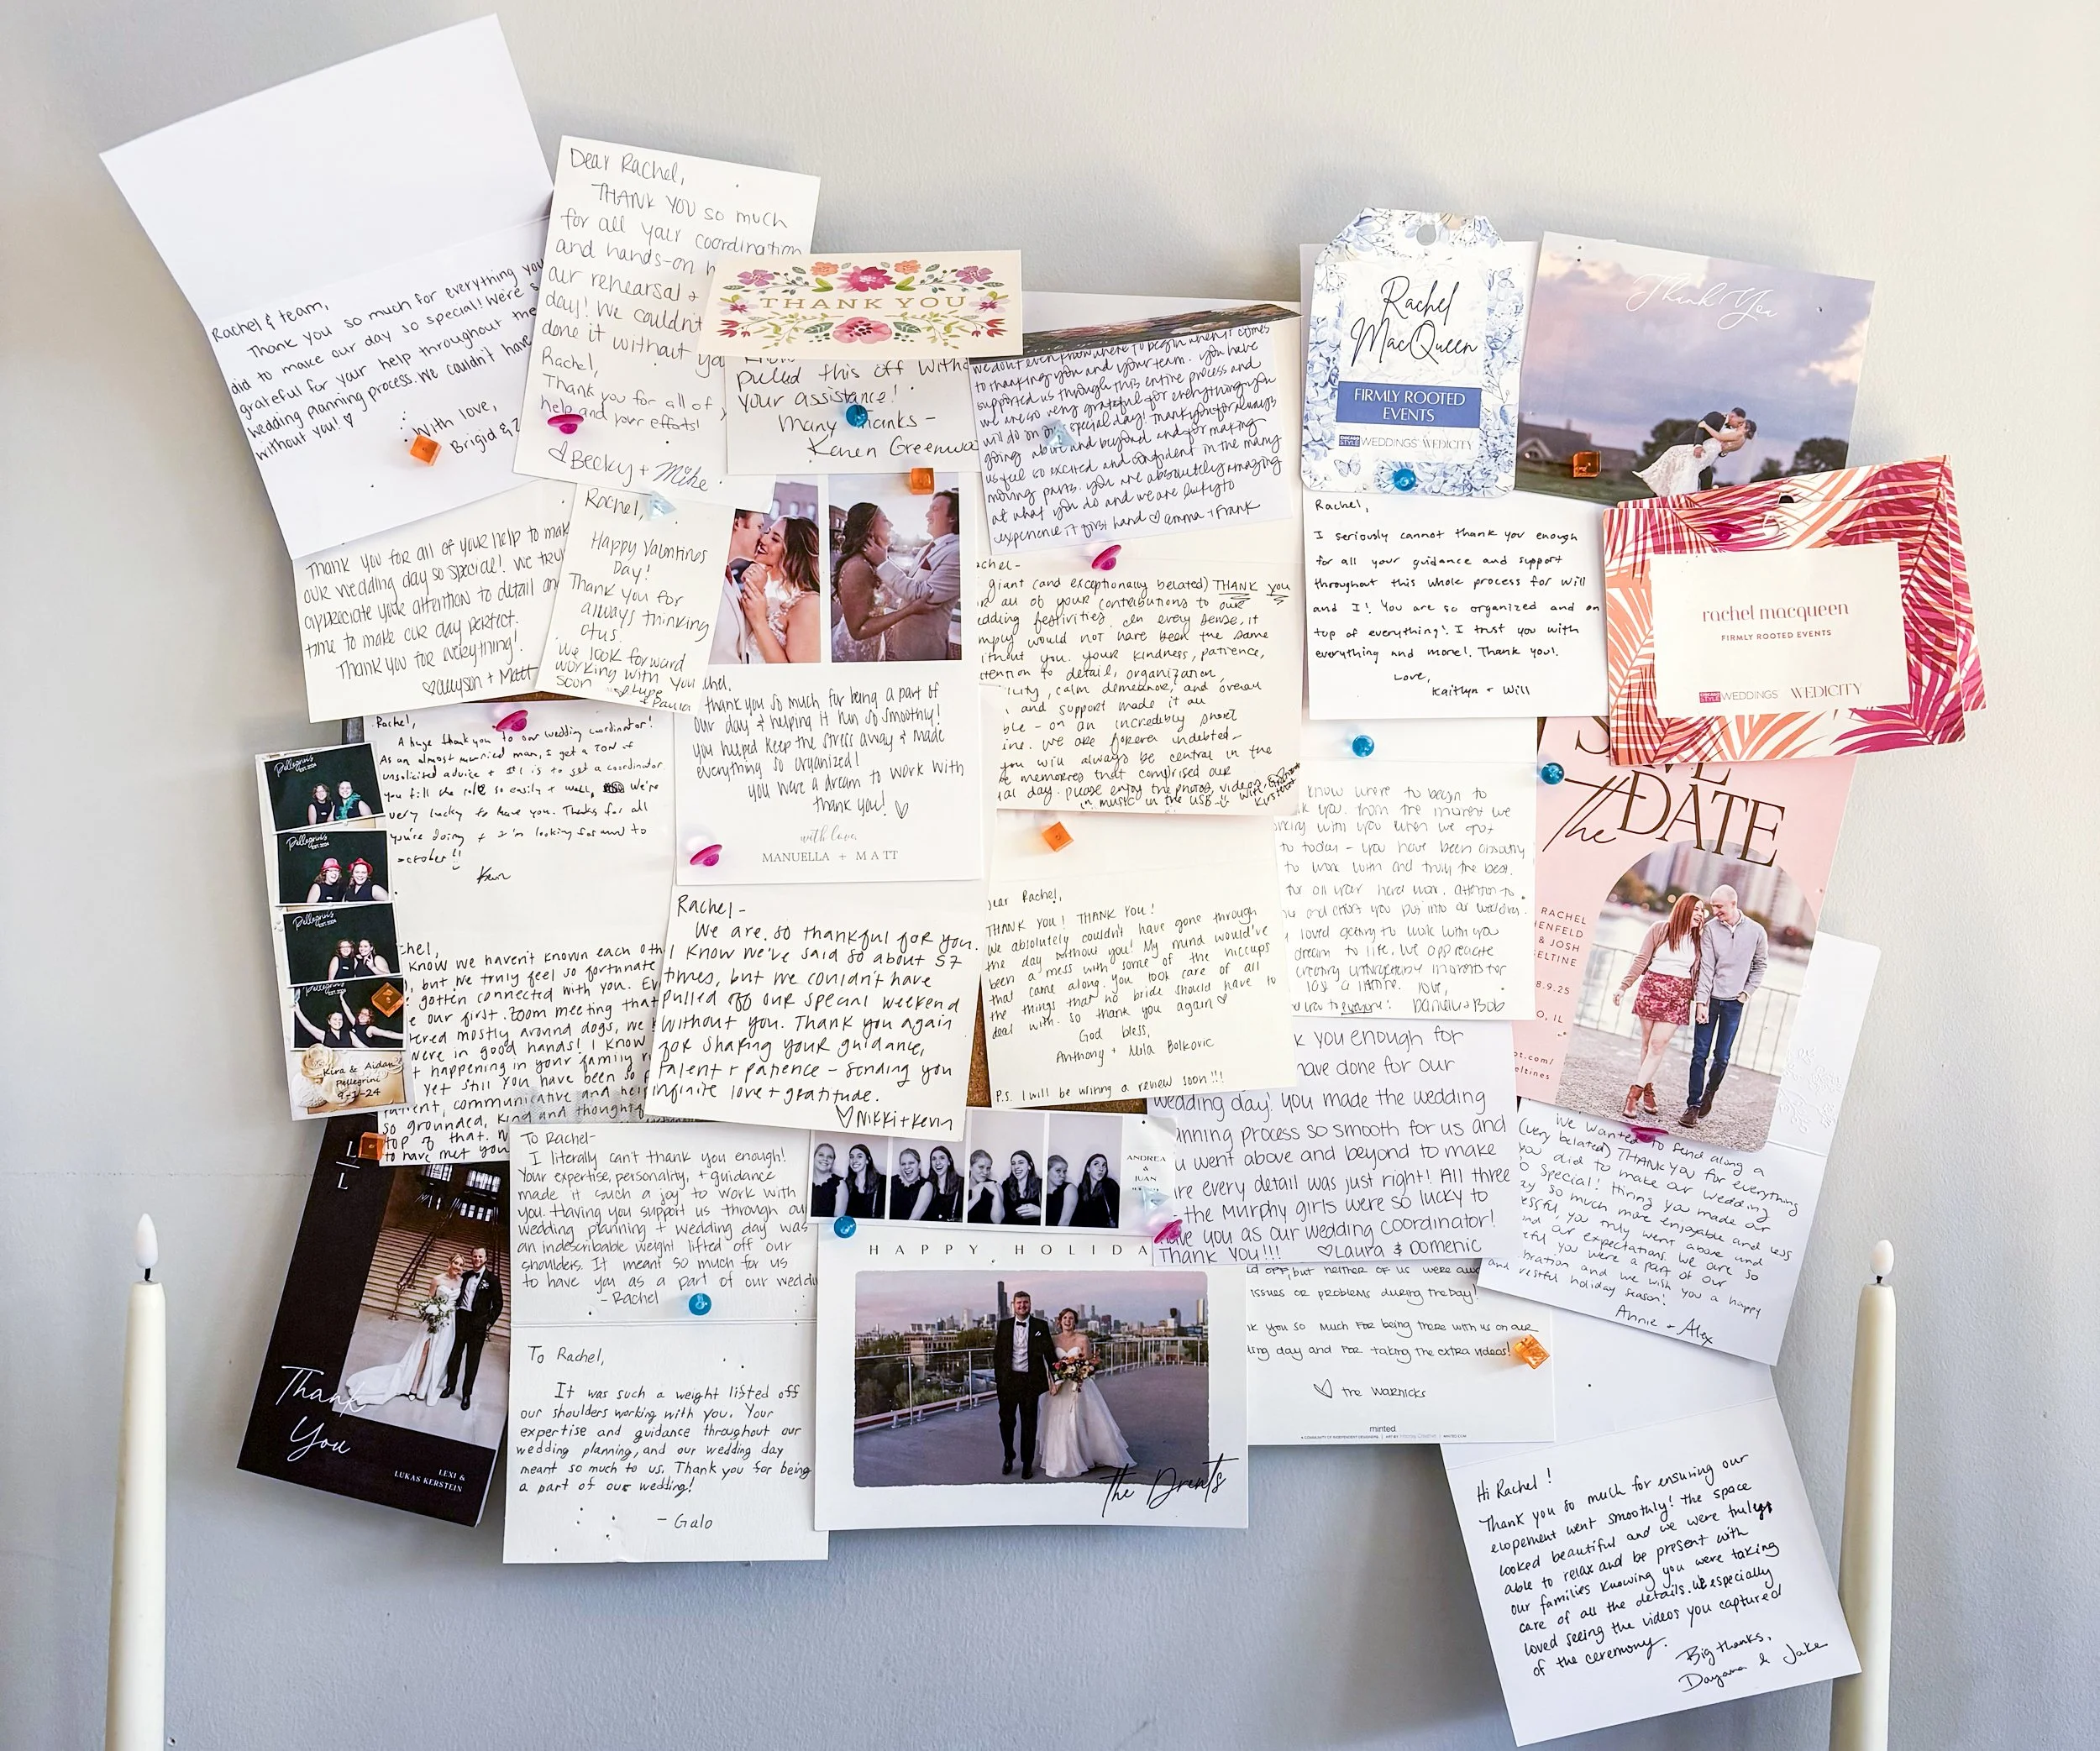 Rachel & team,
Thank you so much for everything you
did to make our day so special! We're s
grateful for your help throughout the
wedding planning process. We couldn't have
without you! ♡
With love,
Brigid &
Dear Rachel,
THANK YOU so much
for all your coordination
and hands-on h
our rehearsal +
day! We couldn't
done it without yo
Rachel,
Thank you for all of
help and your efforts!
♡Becky + Mike
THANK YOU
pulled this off with
your assistance!
Many Thanks -
Karen Greenwa
we don't even know where to begin when it comes
to thanking you and your team. you have
supported us through this entire process and
we are so very grateful for everything you
will do on our special day! Thank you for always
going above and beyond and for making
us feel so excited and confident in the many
moving parts. you are absolutely amazing
at what you do and we are lucky to
experience it first hand ♡ emma + Frank
Rachel
MacQueen
FIRMLY ROOTED
EVENTS
CHICAGO STYLE WEDDINGS WEDICITY
Thank You
Thank you for all of your help to mak
our wedding day so special! We tru
appreciate your attention to detail and
time to make our day perfect.
Thank you for everything!
♡allyson + Matt
Rachel,
Happy Valentines
Day!
Thank you for
always thinking
of us.
We look forward
working with you
soon
Lupe
& Paula
achel-
giant (and exceptionally belated) THANK YOU
r all of your contributions to our
edding festivities. In every sense, it
mply would not have been the same
ithout you. your kindness, patience,
ttention to detail, organization,
ility, calm demeanor, and overall
and support made it all
ble - on an incredibly short
ine. we are forever indebted-
you will always be central in the
e memories that comprised our
ial day. please enjoy the photos, videos,
in music in the USB
Rachel,
I seriously cannot thank you enough
for all your guidance and support
throughout this whole process for Will
and I! You are so organized and on
top of everything! I trust you with
everything and more! Thank you!
Love,
Kaitlyn + Will
rachel macqueen
FIRMLY ROOTED EVENTS
CHICAGO STYLE WEDDINGS WEDICITY
Rachel,
A huge thank you to our wedding coordinator!
As an almost married man, I get a TON of
unsolicited advice + #1 is to get a coordinator
you fill the role so easily + well, we're
very lucky to have you. Thanks for all
you're doing + I'm looking forward to
october!!
Kevin
chel,
thank you so much for being a part of
our day & helping it run so smoothly!
you helped keep the stress away & made
everything so organized!
you were a dream to work with
thank you! ♡
with love,
MANUELLA + MATT
Pellegrinis
EST. 2024
Pellegrinis
EST. 2024
Pellegrinis
EST. 2024
Pellegrinis
EST. 2024
Kira & Aidan
Pellegrini
9-1-24
chel,
know we haven't known each oth
, but we truly feel so fortunate
gotten connected with you. Ev
e our first zoom meeting that
ered mostly around dogs, we
were in good hands! I know
t happening in your family r
yet still you have been so p
patient, communicative and hel
so grounded, kind and thoughtf
top of that.
to have met you
Rachel-
We are so thankful for you.
I know we've said so about 57
times, but we couldn't have
pulled off our special weekend
without you. Thank you again
for sharing your guidance,
talent + patience - sending you
infinite love + gratitude.
♡Nikki+Kevin
ear Rachel,
THANK YOU! THANK YOU!
We absolutely couldn't have gone through
the day without you! My mind would've
been a mess with some of the hiccups
that came along. You took care of all
the things that no bride should have to
deal with. So thank you again ♡
God bless,
Anthony + Mila Bolkovic
P.S. I will be writing a review soon!!!
know where to begin to
k you. from the moment we
rking with you when we got
to today - you have been absolutely
to work with and truly the best.
for all your hard work, attention to
and effort you put into our wedding.
loved getting to work with you
dream to life. We appreciate
creating unforgettable moments for
last a lifetime. Love,
Danielle & Bob
SAVE
the DATE
RACHEL
HENFELD
& JOSH
ELTINE
8.9.25
O, IL
ot.com/
eltines
k you enough for
have done for our
wedding day! You made the wedding
anning process so smooth for us and
u went above and beyond to make
re every detail was just right! All three
- the Murphy girls were so lucky to
ave you as our wedding coordinator!
Thank you!!! ♡Laura & Domenic
We wanted to send along a
(very belated) THANK YOU for everything
you did to make our wedding
o special! Hiring you made our
ay so much more enjoyable and less
essful, you truly went above and
nd our expectations. We are so
eful you were a part of our
bration and we wish you a happy
and restful holiday season!
Annie + Alex
L
L
Thank
You
LEXI &
LUKAS KERSTEIN
To Rachel-
I literally can't thank you enough!
Your expertise, personality, + guidance
made it such a joy to work with
you. Having you support us through ou
wedding planning + wedding day was
an indescribable weight lifted off our
shoulders. It meant so much for us
to have you as a part of our weddi
- Rachel
To Rachel,
It was such a weight listed off
our shoulders working with you. Your
expertise and guidance throughout our
wedding planning, and our wedding day
meant so much to us. Thank you for being
a part of our wedding!
- Galo
ANDREA
&
JUAN
HAPPY HOLIDA
The Drents
d off, but neither of us were awa
issues or problems during the day!
k you so much for being there with us on our
ing day and for taking the extra videos!
♡ the Warnicks
minted.
Hi Rachel!
Thank you so much for ensuring our
elopement went smoothly! The space
looked beautiful and we were truly
able to relax and be present with
our families knowing you were taking
care of all the details. We especially
loved seeing the videos you captured
of the ceremony.
Big thanks,
Dayana & Jake